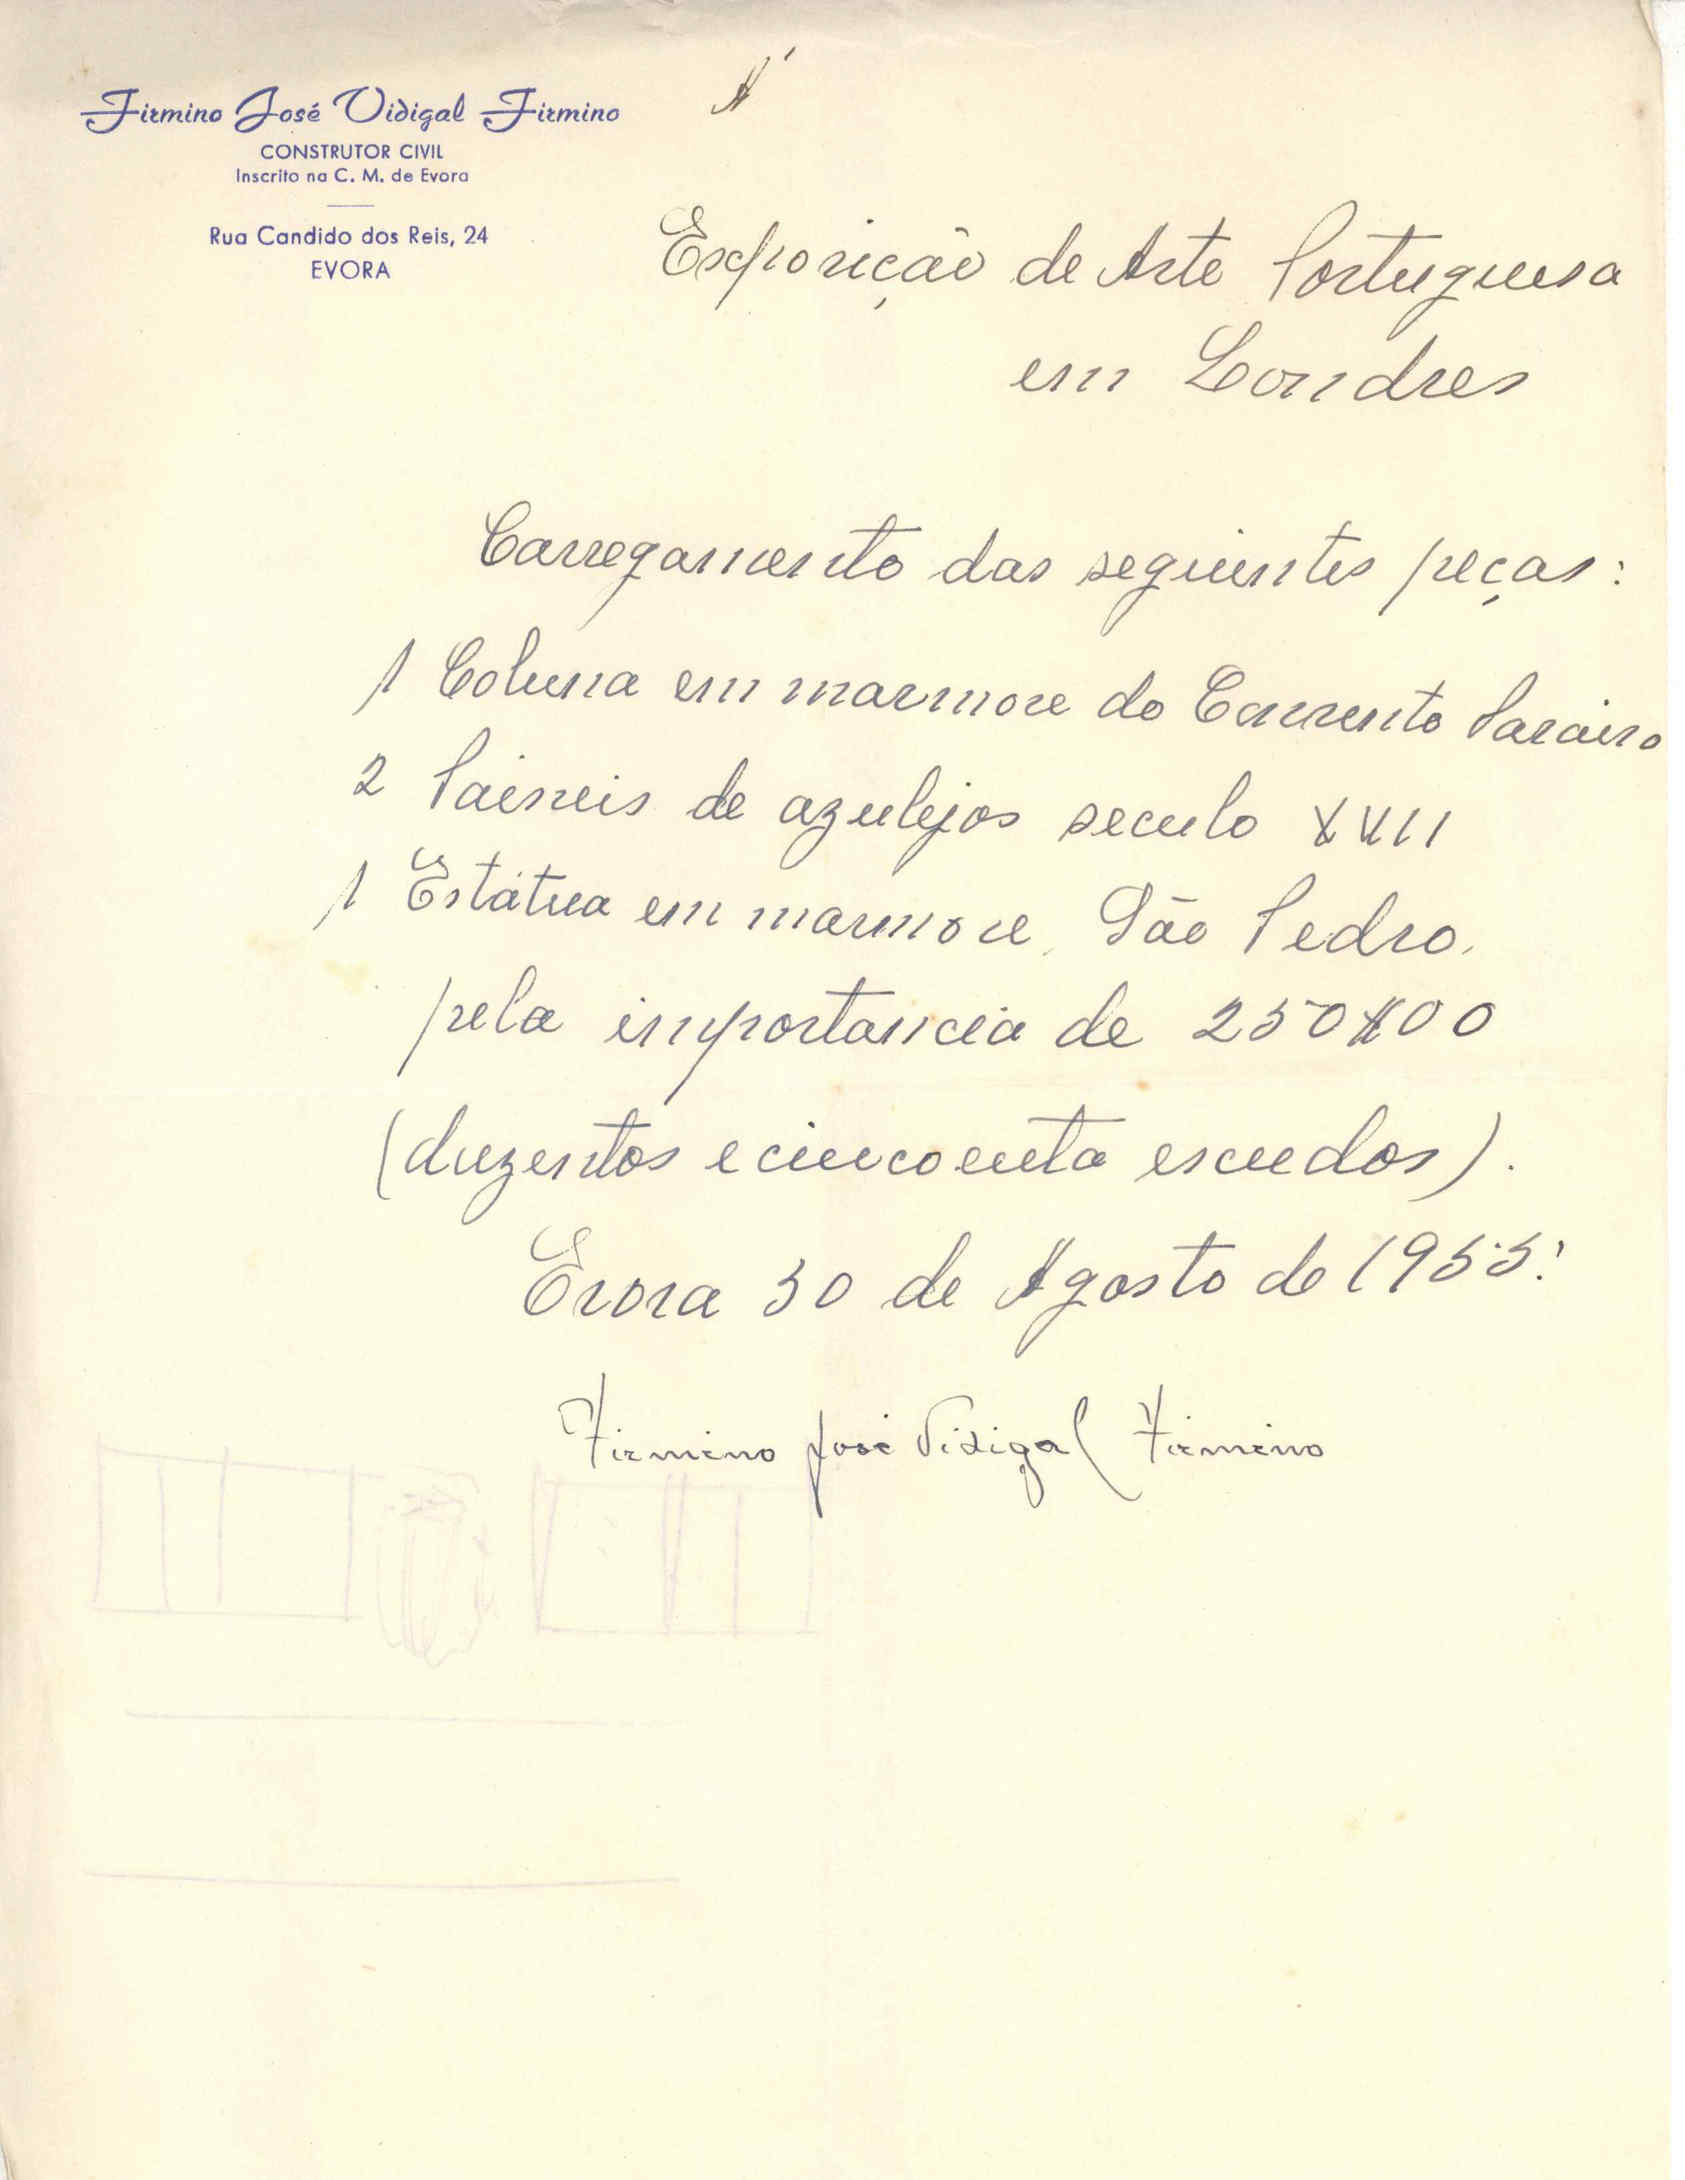 Firmino José Vidigal Firmino
CONSTRUTOR CIVIL
Inscrito na C. M. de Evora
Rua Candido dos Reis, 24
EVORA
Á
Exposição de Arte Portuguesa
em Londres
Carregamento das seguintes peças:
1 Coluna em marmore do Convento Paraiso
2 Paineis de azulejos seculo XVII
1 Estátua em marmore São Pedro.
pela importancia de 250$00
(duzentos e cincoenta escudos).
Evora 30 de Agosto de 1955.
Firmino José Vidigal Firmino